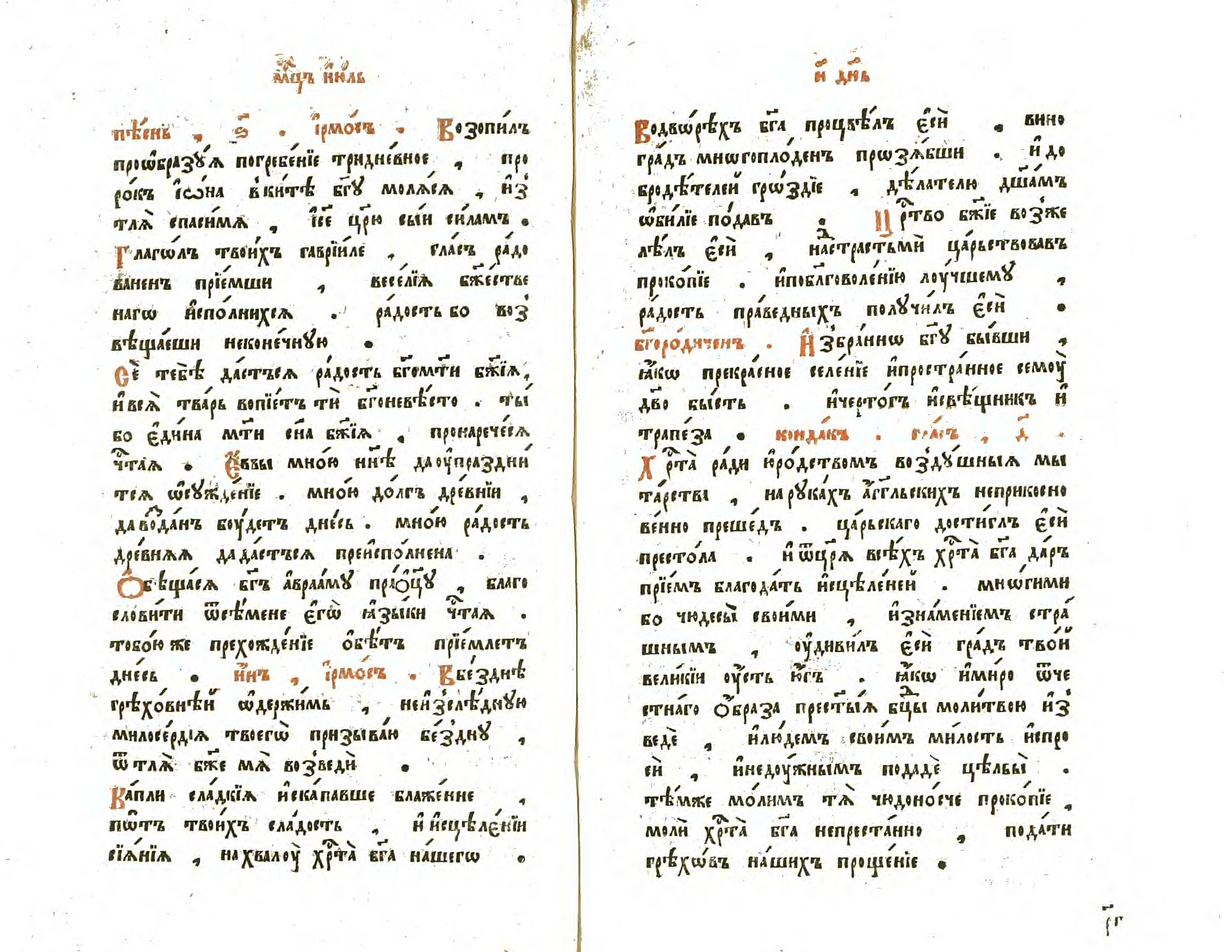 мц҃ъ і҆ю́ль
пѣ́снь , ѕ҃ . і҆рмо́съ . Возопи́лъ
проѡбразꙋ́ѧ погребе́нїе тридне́вное , про
ро́къ і҆ѡ́на вки́тѣ бг҃ꙋ молѧ́сѧ , и҆з̾
тлѧ̀ спаси́мѧ , і҆с҃е цр҃ю сы́и си́ламъ .
Глаго́лъ твои́хъ гаврїи́ле , гла́съ ра́до
ва́ненъ прїе́мши , весе́лїѧ бж҃е́стве
нагѡ и҆спо́лнихсѧ . ра́дость бо воз̾
вѣща́еши неконе́чнꙋю .
Се́ тебѣ̀ да́стъсѧ ра́дость бг҃ом҃ти бж҃їѧ,
и҆всѧ̀ тва́рь вопїе́тъ ти бг҃оневѣ́сто . ты́
бо є҆ди́на мт҃и сн҃а бж҃їѧ , пронарече́сѧ
чⷭ҇таѧ . Є҆ввы мно́ю нн҃ѣ даоу҆праздни́
тсѧ ѡ҆сꙋжде́нїе . мно́ю до́лгъ дре́внїи ,
даво́данъ боу́детъ дне́сь . мно́ю ра́дость
дре́внѧѧ дада́стъсѧ преи҆спо́лнена .
Ѻ҆бѣща́сѧ бг҃ъ а҆враа́мꙋ пра́ѻц҃ꙋ , благо
слови́ти ѿсѣ́мене є҆гѡ̀ ꙗ҆зы́ки чⷭ҇таѧ .
тобо́ю же прехожде́нїе ѻ҆бѣ́тъ прїе́млетъ
дне́сь . и҆́нъ , і҆рмо́съ . Вбе́зднѣ
грѣхо́внѣй ѡ҆держи́мь , неи҆зслѣ́днꙋю
милосе́рдїѧ твоегѡ̀ призыва́ю бе́зднꙋ ,
ѿ тлѧ̀ бж҃е мѧ̀ возведѝ .
Ка́пли сла́дкїѧ и҆ска́павше блаже́нне ,
пѡ́тъ твои́хъ сла́дость , и҆ и҆сцѣле́нїи
сїѧ́нїѧ , нахвалоу̀ хрⷭ҇та̀ бг҃а на́шегѡ .
и҃ дн҃ь
Водво́рѣхъ бг҃а процвѣ́лъ є҆сѝ . вино
гра́дъ мнѡгоплоде́нъ прѡзѧ́бши . и҆ до
бродѣ́телей гро́здїе , дѣ́лателю дш҃а́мъ
ѡ҆би́лїе пода́въ . Црⷭ҇тво бж҃їе возже
лѣ́лъ є҆сѝ , настрастьми́ ца́рьствовавъ
проко́пїе . и҆поблг҃оволе́нїю лоу́чшемꙋ ,
ра́дость пра́ведныхъ получи́лъ є҆сѝ .
бг҃оро́диченъ . И҆збра́ннѡ бг҃ꙋ бы́вши ,
ꙗ҆́кѡ прекра́сное селе́нїе и҆простра́нное семоу̀
дв҃о бы́сть . и҆черто́гъ и҆свѣ́щникъ и҆
трапе́за . конда́къ . гла́съ , д҃ .
Хрⷭ҇та̀ ра́ди ю҆ро́дствомъ возд́ꙋшныѧ мы
та́рства , на рꙋка́хъ а҆́гг҃льскихъ неприкосно
ве́нно преше́дъ . ца́рьскаго дости́глъ є҆сѝ
престо́ла . и҆ ѿцр҃ѧ всѣ́хъ хрⷭ҇та̀ бг҃а да́ръ
прїе́мъ благода́ть и҆сцѣле́ней . мно́гими
бо чюдесы̀ свои́ми , и҆зна́менїемъ стра́
шнымъ , оу҆диви́лъ є҆сѝ гра́дъ тво́й
вели́кїи оу҆́сть ю҆́гъ . ꙗ҆́кѡ и҆ми́ро ѿче
стна́го ѻ҆́браза прест҃ы́ѧ бцⷣы моли́твою и҆з̾
ведѐ , и҆лю́демъ свои́мъ ми́лость и҆спро
сѝ , и҆недоу́жнымъ подадѐ цѣльбы̀ .
тѣ́мже мо́лимъ тѧ̀ чюдоно́сче проко́пїе ,
молѝ хрⷭ҇та̀ бг҃а непреста́нно , пода́ти
грѣхо́въ на́шихъ проще́нїе .
р҃г